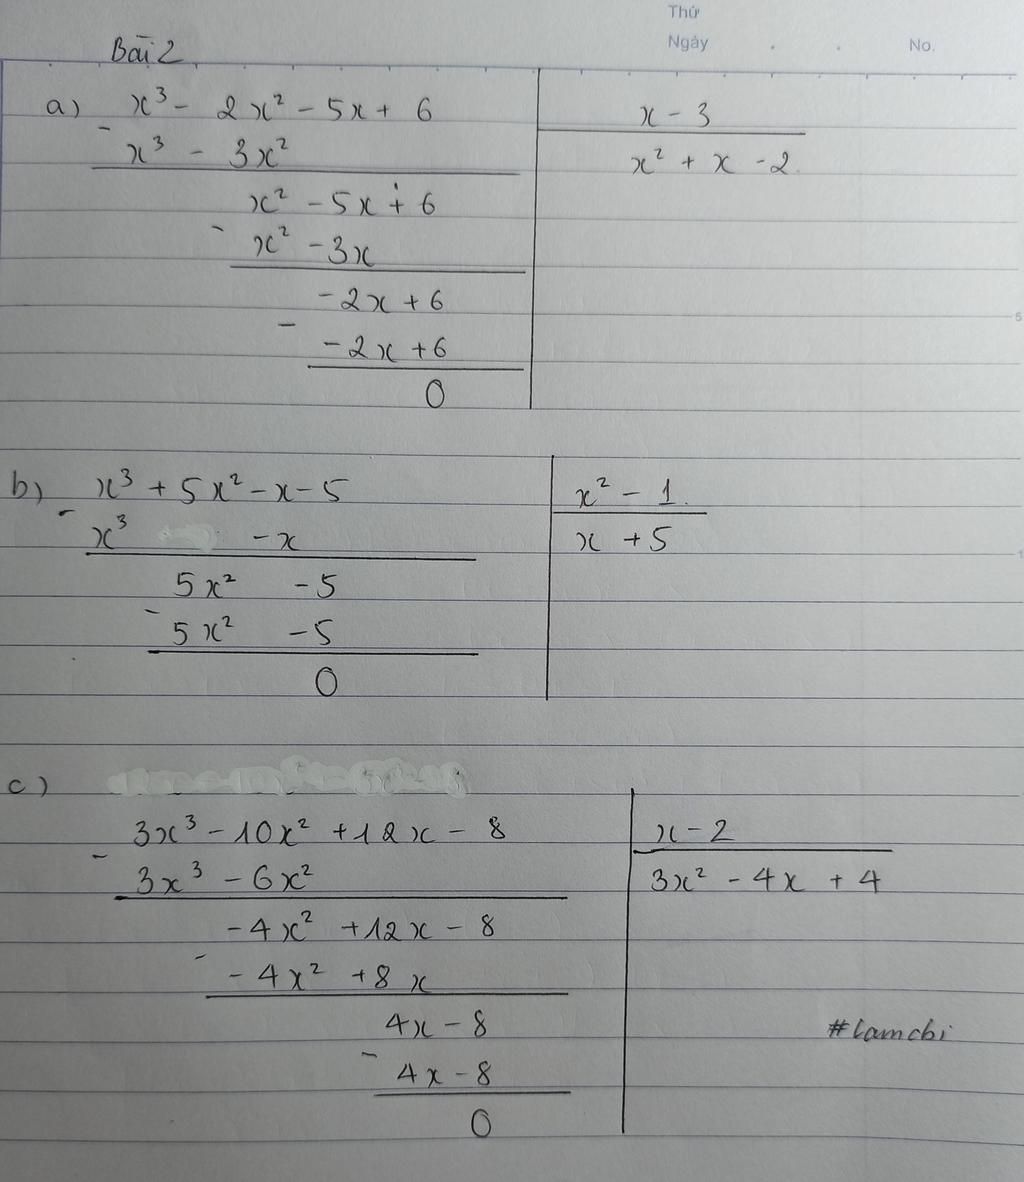 Thứ
Ngày . . No.
Bài 2
a) x³ - 2x² - 5x + 6 | x - 3
- x³ - 3x² | x² + x - 2
x² - 5x + 6
- x² - 3x
-2x + 6
- -2x + 6
0
b) x³ + 5x² - x - 5 | x² - 1
- x³ - x | x + 5
5x² - 5
- 5x² - 5
0
c)
3x³ - 10x² + 12x - 8 | x - 2
- 3x³ - 6x² | 3x² - 4x + 4
-4x² + 12x - 8
- -4x² + 8x
4x - 8
#lamchi
- 4x - 8
0